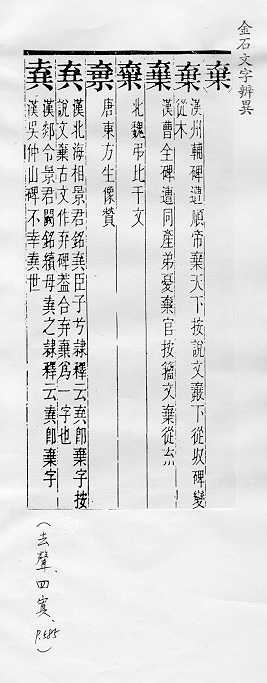 金石文字辨異
棄
漢州輔碑遭順帝棄天下按說文棄下從収碑變
從木
棄
漢曹全碑遭同產弟憂棄官按籀文棄從㐬
棄
北魏弔比干文
棄
唐東方生像贊
棄
漢北海相景君銘棄臣子兮隸釋云棄即棄字按
說文棄古文作弃碑蓋合弃棄為一字也
漢郯令景君闕銘績母棄之隸釋云棄即棄字
棄
漢吳仲山碑不幸棄世
(去聲、四寘、P.685)